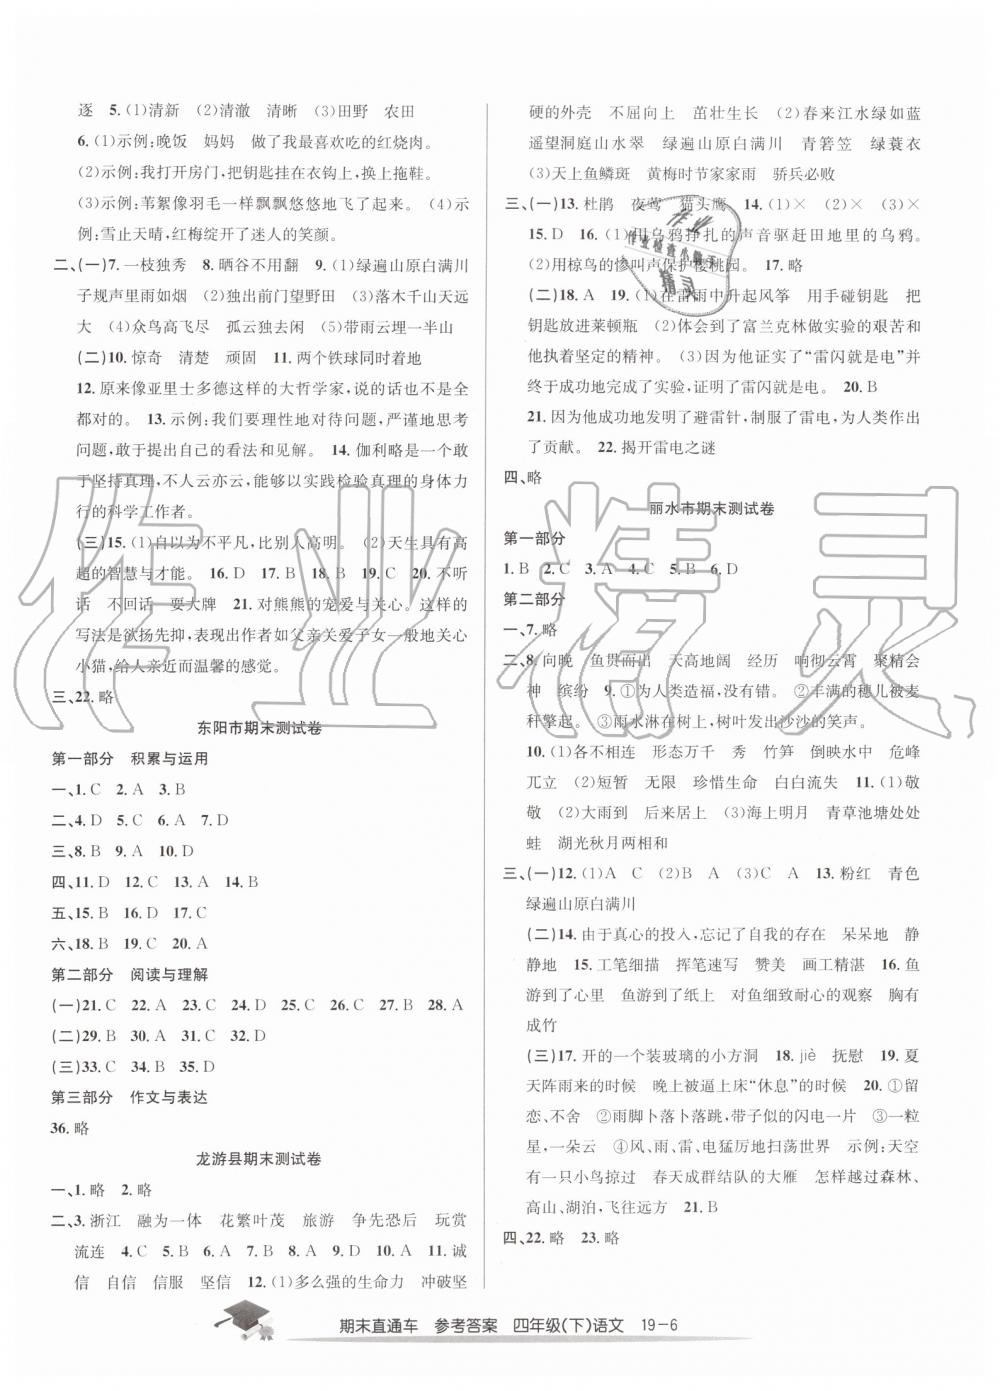 逐 5.(1)清新 (2)清澈 清晰 (3)田野 农田
6.(1)示例:晚饭 妈妈 做了我最喜欢吃的红烧肉。
(2)示例:我打开房门,把钥匙挂在衣钩上,换上拖鞋。
(3)示例:苇絮像羽毛一样飘飘悠悠地飞了起来。(4)示
例:雪止天晴,红梅绽开了迷人的笑颜。
二、(一)7.一枝独秀 8.晒谷不用翻 9.(1)绿遍山原白满川
子规声里雨如烟 (2)独出前门望野田 (3)落木千山天远
大 (4)众鸟高飞尽 孤云独去闲 (5)带雨云埋一半山
(二)10.惊奇 清楚 顽固 11.两个铁球同时着地
12.原来像亚里士多德这样的大哲学家,说的话也不是全
都对的。 13.示例:我们要理性地对待问题,严谨地思考
问题,敢于提出自己的看法和见解。 14.伽利略是一个敢
于坚持真理,不人云亦云,能够以实践检验真理的身体力
行的科学工作者。
(三)15.(1)自以为不平凡,比别人高明。 (2)天生具有高
超的智慧与才能。 16.D 17.B 18.B 19.C 20.不听
话 不回话 耍大牌 21.对熊熊的宠爱与关心。这样的
写法是欲扬先抑,表现出作者如父亲关爱子女一般地关心
小猫,给人亲近而温馨的感觉。
三、22.略
东阳市期末测试卷
第一部分 积累与运用
一、1.C 2.A 3.B
二、4.D 5.C 6.A 7.D
三、8.B 9.A 10.D
四、11.D 12.C 13.A 14.B
五、15.B 16.D 17.C
六、18.B 19.C 20.A
第二部分 阅读与理解
(一)21.C 22.A 23.A 24.D 25.C 26.D 27.B 28.A
(二)29.B 30.A 31.C 32.D
(三)33.C 34.B 35.D
第三部分 作文与表达
36.略
龙游县期末测试卷
一、1.略 2.略
二、3.浙江 融为一体 花繁叶茂 旅游 争先恐后 玩赏
流连 4.C 5.B 6.C 7.B 8.B 9.C 10.A 11.诚
信 自信 信服 坚信 12.(1)多么强的生命力 冲破坚
硬的外壳 不屈向上 茁壮生长 (2)春来江水绿如蓝
遥望洞庭山水翠 绿遍山原白满川 青箬笠 绿蓑衣
(3)天上鱼鳞斑 黄梅时节家家雨 骄兵必败
三、(一)13.杜鹃 夜莺 猫头鹰 14.(1)× (2)×
15.D 16.(1)用乌鸦挣扎的声音驱赶田地里的乌鸦。
(2)用椋鸟的惨叫声保护樱桃园。 17.略
(二)18.A 19.(1)在雷雨中升起风筝 用手碰钥匙 把
钥匙放进莱顿瓶 (2)体会到了富兰克林做实验的艰苦和
他执着坚定的精神。 (3)因为他证实了“雷闪就是电”并
终于成功地完成了实验,证明了雷闪就是电。 20.B
21.因为他成功地发明了避雷针,制服了雷电,为人类作出
了贡献。 22.揭开雷电之谜
四、略
丽水市期末测试卷
第一部分
1.B 2.C 3.A 4.C 5.B 6.D
第二部分
一、7.略
二、8.向晚 鱼贯而出 天高地阔 经历 响彻云霄 聚精会
神 缤纷 9.①为人类造福,没有错。 ②丰满的穗儿被麦
秆擎起。 ③雨水淋在树上,树叶发出沙沙的笑声。
10.(1)各不相连 形态万千 秀 竹笋 倒映水中 危峰
兀立 (2)短暂 无限 珍惜生命 白白流失 11.(1)敬
敬 (2)大雨到 后来居上 (3)海上明月 青草池塘处处
蛙 湖光秋月两相和
三、(一)12.(1)A C (2)B A (3)C A 13.粉红 青色
绿遍山原白满川
(二)14.由于真心的投入,忘记了自我的存在 呆呆地 静
静地 15.工笔细描 挥笔速写 赞美 画工精湛 16.鱼
游到了心里 鱼游到了纸上 对鱼细致耐心的观察 胸有
成竹
(三)17.开的一个装玻璃的小方洞 18.jiè 抚慰 19.夏
天阵雨来的时候 晚上被逼上床“休息”的时候 20.①留
恋、不舍 ②雨脚卜落卜落跳,带子似的闪电一片 ③一粒
星,一朵云 ④风、雨、雷、电猛厉地扫荡世界 示例:天空
有一只小鸟掠过 春天成群结队的大雁 正飞过森林、
高山、湖泊,飞往远方 21.B
四、22.略 23.略
作业
作业检查小助手
精灵
作业精灵
期末直通车 参考答案 四年级(下)语文 19-6